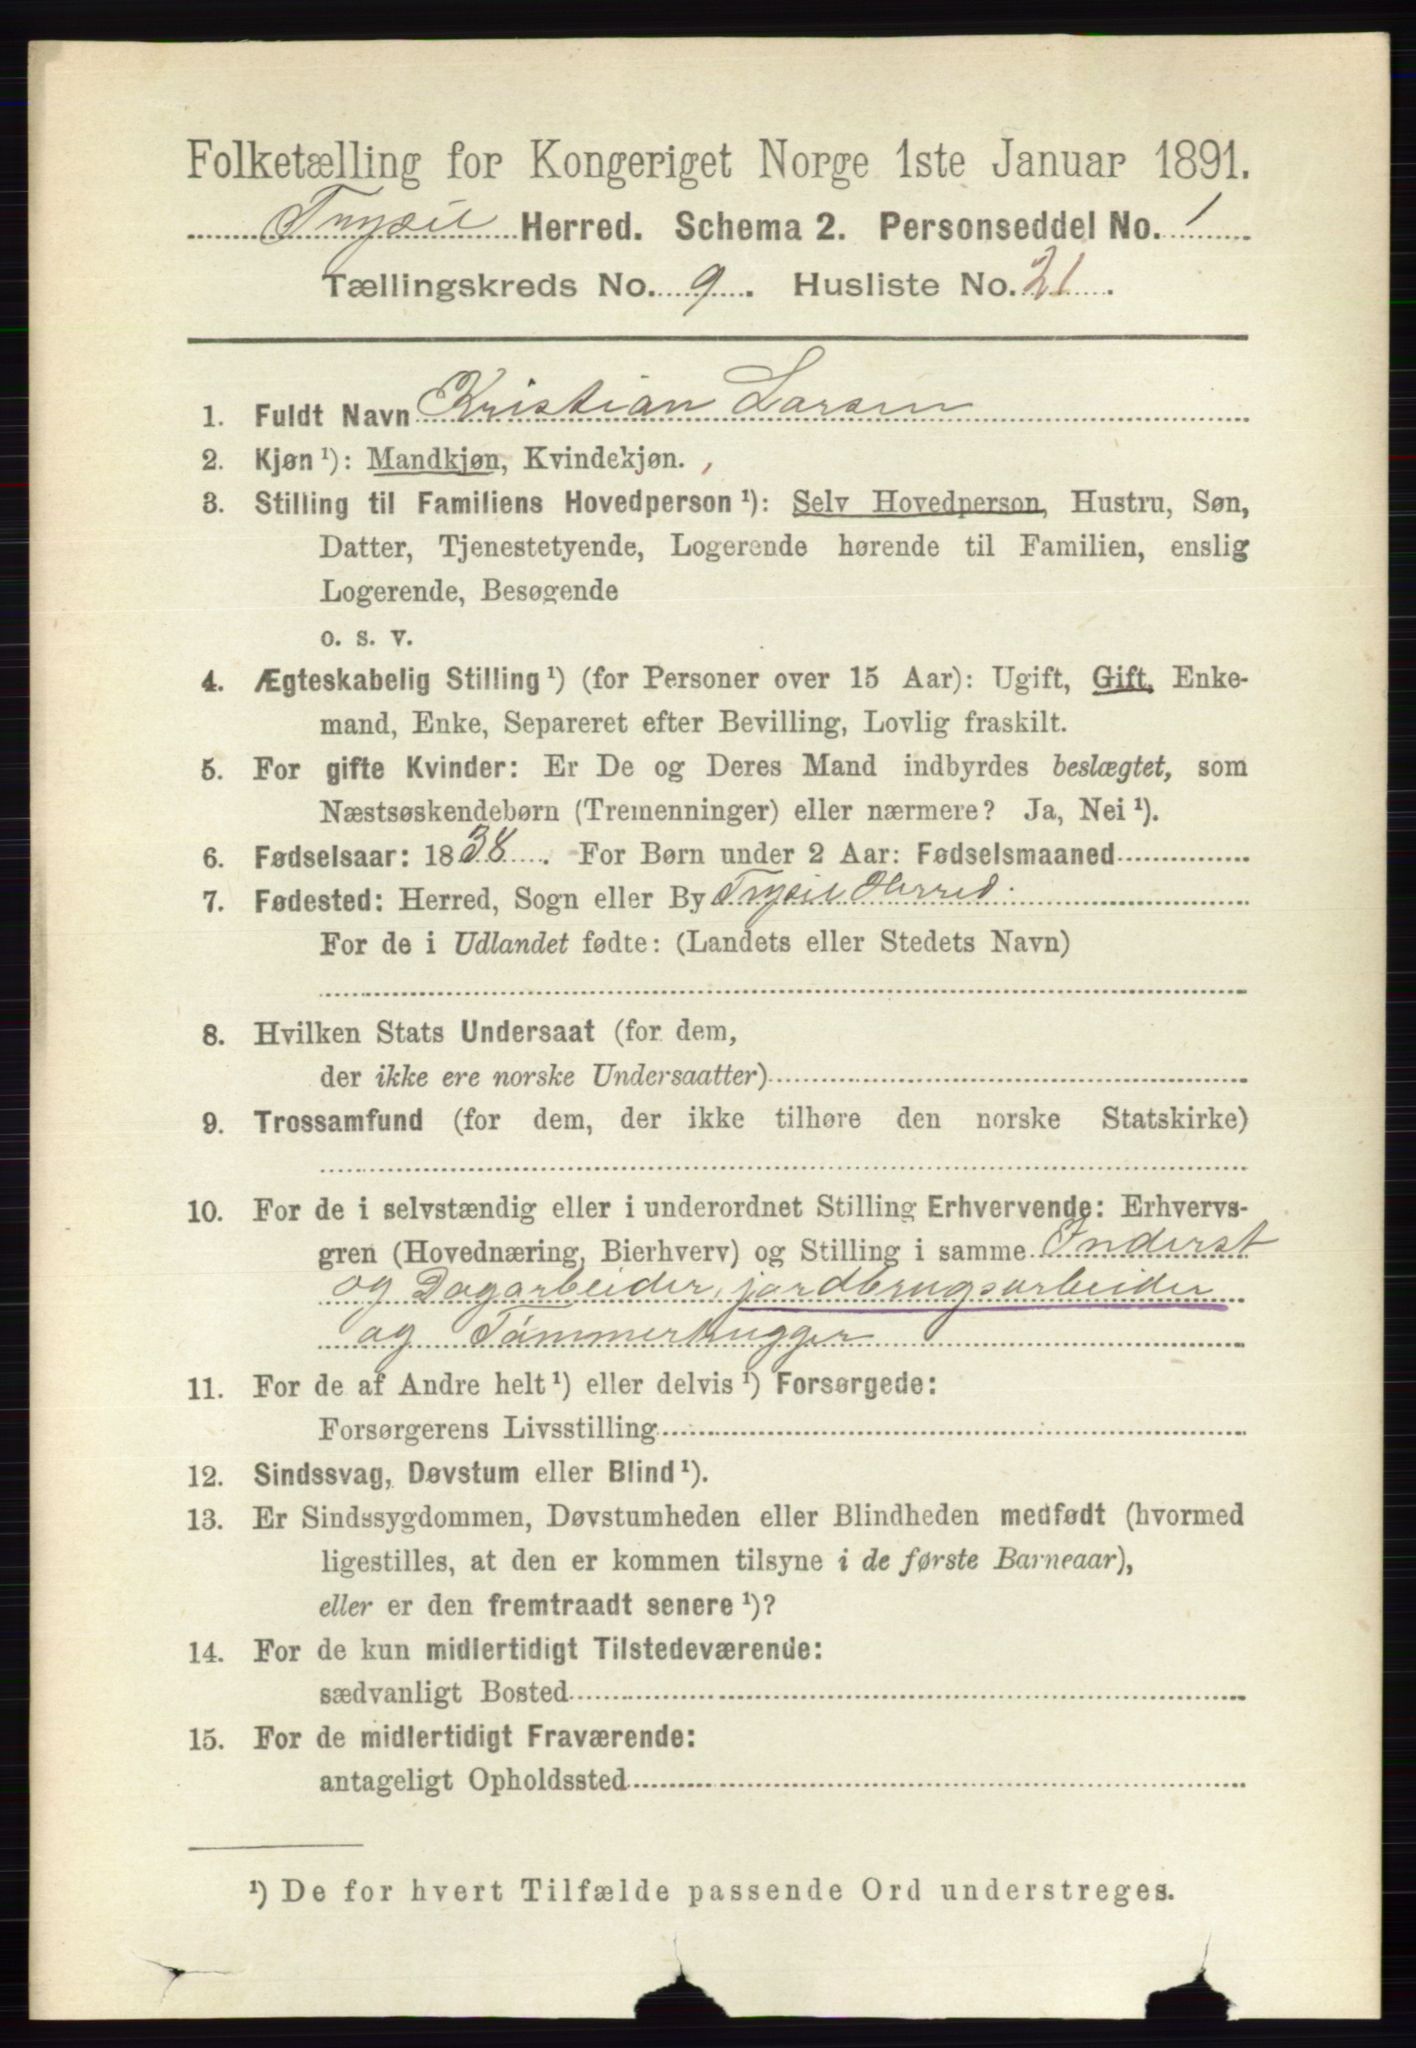 Folketælling for Kongeriget Norge 1ste Januar 1891.
Trysil Herred. Schema 2. Personseddel No. 1
Tællingskreds No. 9. Husliste No. 21.
1. Fuldt Navn Kristian Larsen
2. Kjøn ¹): Mandkjøn, Kvindekjøn.
3. Stilling til Familiens Hovedperson ¹): Selv Hovedperson, Hustru, Søn,
Datter, Tjenestetyende, Logerende hørende til Familien, enslig
Logerende, Besøgende
o. s. v.
4. Ægteskabelig Stilling ¹) (for Personer over 15 Aar): Ugift, Gift, Enke-
mand, Enke, Separeret efter Bevilling, Lovlig fraskilt.
5. For gifte Kvinder: Er De og Deres Mand indbyrdes beslægtet, som
Næstsøskendebørn (Tremenninger) eller nærmere? Ja, Nei ¹).
6. Fødselsaar: 1838. For Børn under 2 Aar: Fødselsmaaned
7. Fødested: Herred, Sogn eller By Trysil Herred.
For de i Udlandet fødte: (Landets eller Stedets Navn)
8. Hvilken Stats Undersaat (for dem,
der ikke ere norske Undersaatter)
9. Trossamfund (for dem, der ikke tilhøre den norske Statskirke)
10. For de i selvstændig eller i underordnet Stilling Erhvervende: Erhvervs-
gren (Hovednæring, Bierhverv) og Stilling i samme Inderst
og Dagarbeider, jordbrugsarbeider
og Tømmerhugger
11. For de af Andre helt ¹) eller delvis ¹) Forsørgede:
Forsørgerens Livsstilling
12. Sindssvag, Døvstum eller Blind ¹).
13. Er Sindssygdommen, Døvstumheden eller Blindheden medfødt (hvormed
ligestilles, at den er kommen tilsyne i de første Barneaar),
eller er den fremtraadt senere ¹)?
14. For de kun midlertidigt Tilstedeværende:
sædvanligt Bosted
15. For de midlertidigt Fraværende:
antageligt Opholdssted
¹) De for hvert Tilfælde passende Ord understreges.